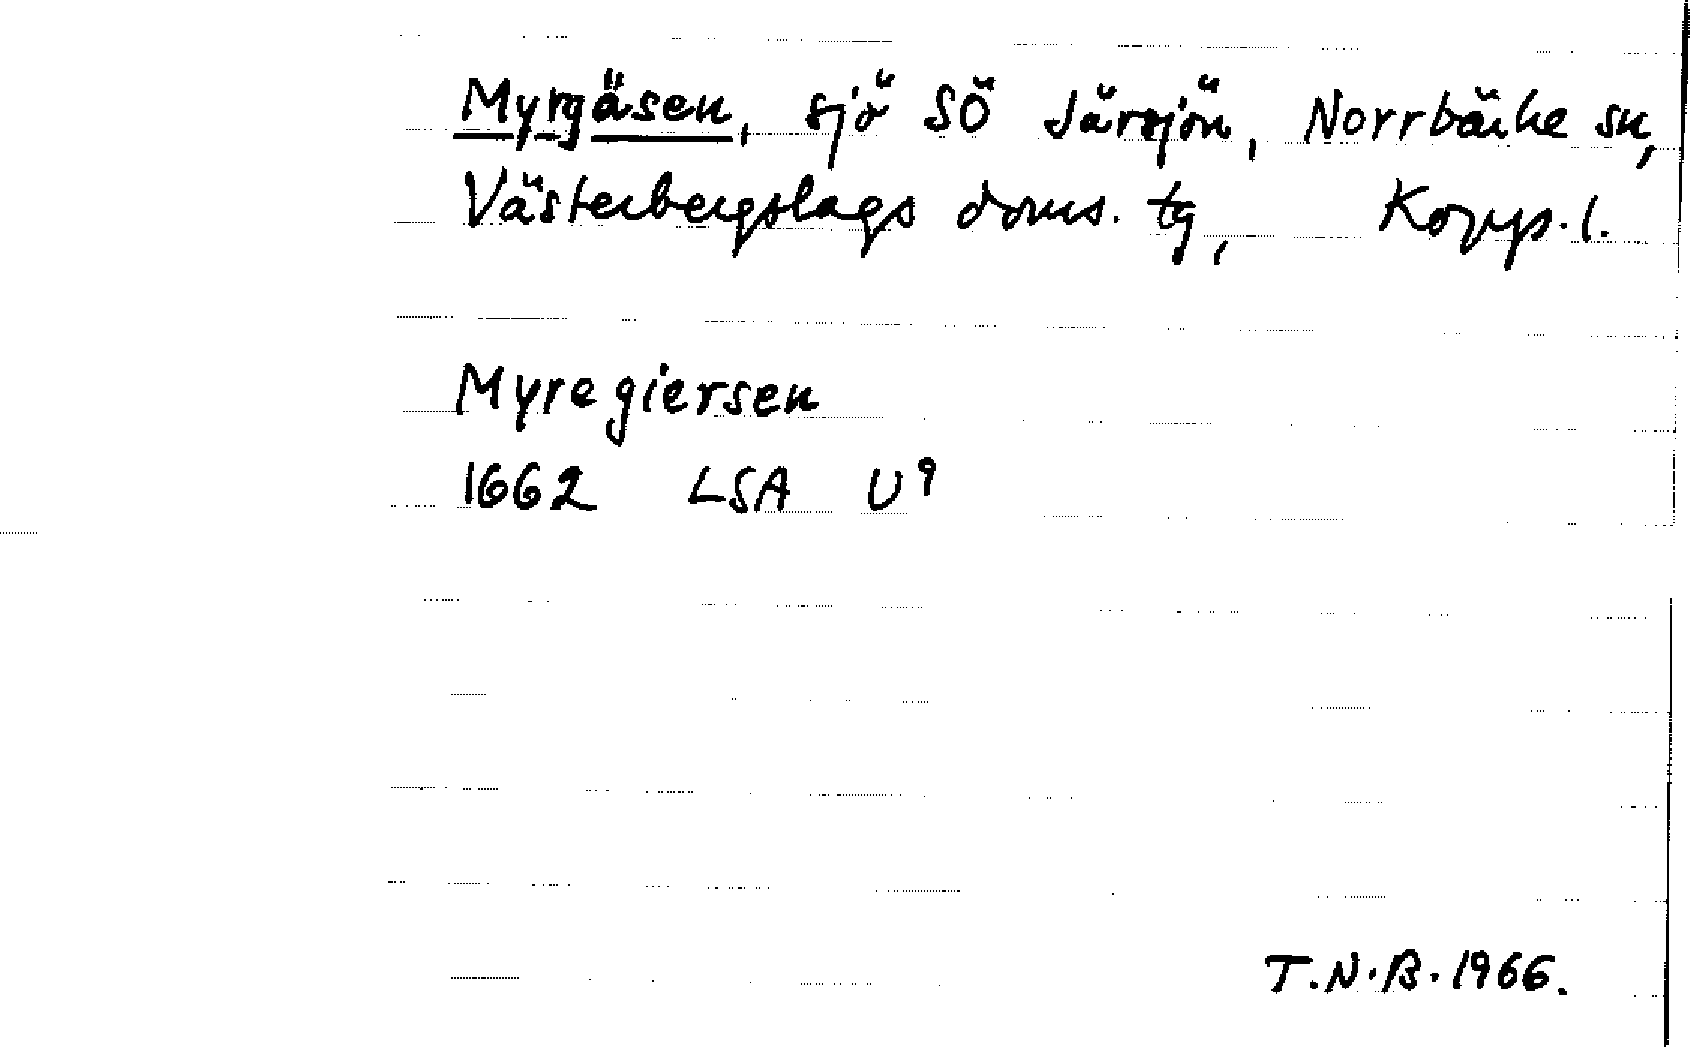 Myrgäsen, sjö SÖ Järsjön, Norrbärke sn,
Västerbergslags doms. tg, Kopp. l.
Myregiersen
1662 LSA U9
T.N.B. 1966.